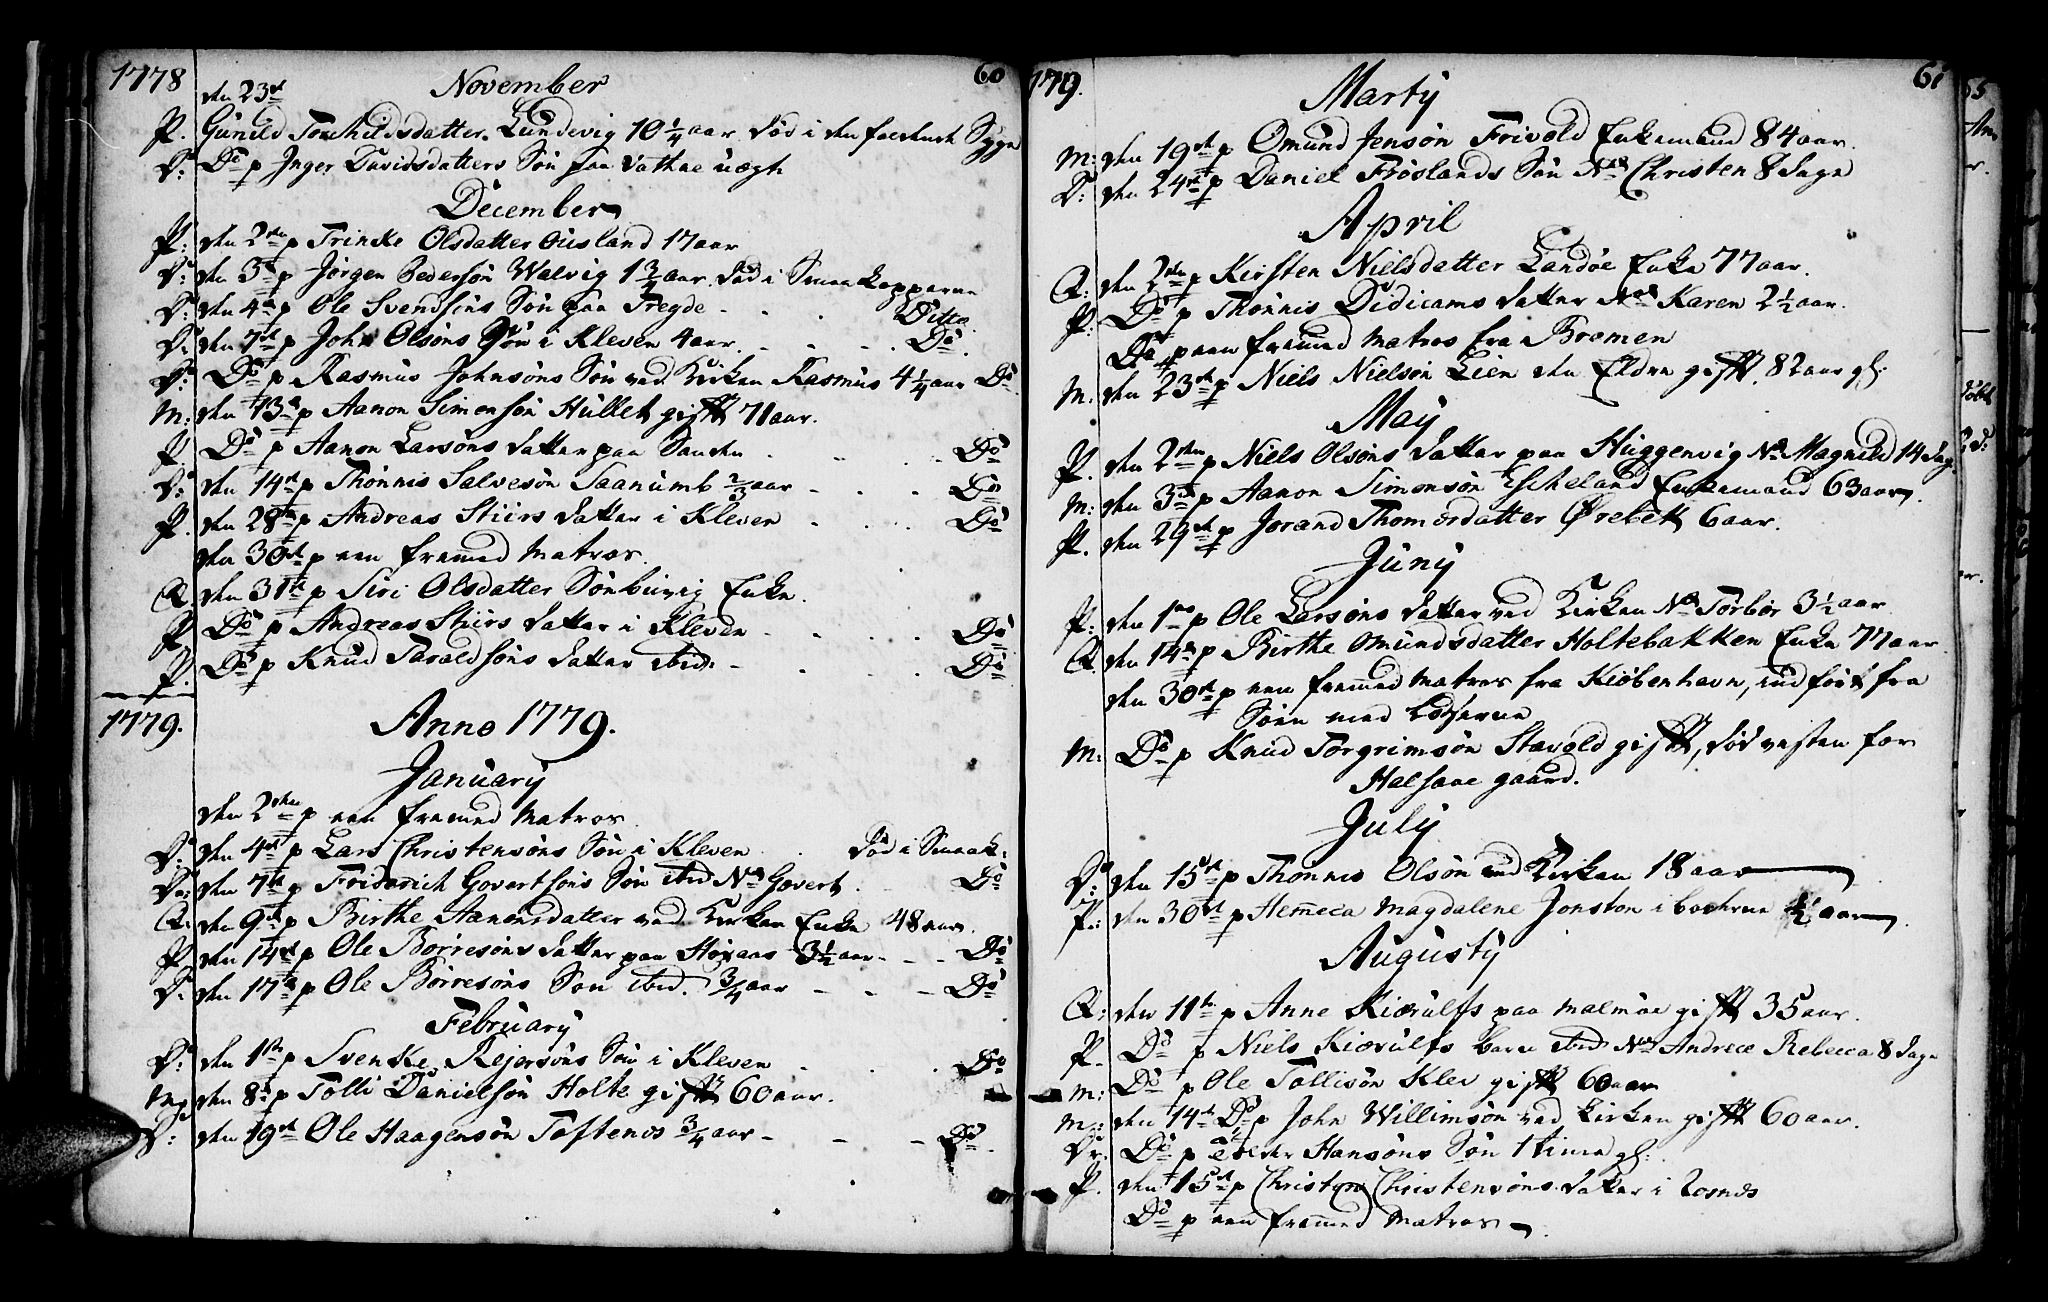 1778 November 60
den 23de
P. Gunild Torkildsdatter. Lundevig 10 1/4 aar død i den
D: Do p Inger Davidsdatters Søn paa Vatne uægte
December
P: den 2den p Trinke Olsdatter Ousland 17 aar
D: den 3de p Jørgen Pedersøn Walvig 1 3/4 aar død i Smaakopperne
D: den 4de p Ole Svendsens Søn paa Tregde - - - Ditto.
D: den 7de p John Olsøns Søn i Kleven 4 aar. - - - Do.
D: Do p Rasmus Johnsøns Søn ved Kirken Rasmus 4 1/4 aar Do
M: den 13de p Aanon Simonsøn Hullet gift 71 aar.
P. Do p Aanon Larsøns datter paa Sanden - - - Do
D: den 14de p Thønnis Salvesøn Saanumb 2/3 aar - - - Do
P. den 28de p Andreas Stiirs datter i Kleven - - - Do
den 30de p een fremmed Matros.
Q. den 31te p Siri Olsdatter Sønbuvig Enke.
P. Do p Andreas Stiirs datter i Kleven - - - Do
P. Do p Knud Taraldsøns datter ibid: - - Do
1779. Anno 1779.
January
den 2den p een fremmed Matros.
D: den 4de p Lars Christensøns Søn i Kleven . . død i Smaak:
D: den 7de p Friderich Govertsøns Søn ibid Na Govert . - - Do
Q: den 9de p Birthe Aanensdatter ved Kirken Enke 48 aar.
P. den 14de p Ole Børresøns datter paa 3 1/2 aar - - - Do
D: den 17de p Ole Børresøns Søn ibid. 3/4 aar - - - Do
February
D: den 1ste p Svenke Rejersøns Søn i Kleven - - - Do
M: den 8de p Tolli Danielsøn Holte gift 60 aar.
D: den 19de Ole Haagensøn Toftenes 3/4 aar - - - Do.
1779. Martÿ 61
M: den 19de p Omund Jensøn Frivold Enkemand 84 aar.
D: den 24de p Daniel Frøslands Søn Na Christen 8 dage
April
Q: den 2den p Kirsten Nielsdatter Landøe Enke 77 aar.
P: Do p Thønnis Didicams datter Na Karen 2 1/2 aar.
Do p een fremmed Matros fra Bremen
M: den 23de p Niels Nielsøn Lien den Eldre gift, 82 aar gl:
May
P. den 2den p Niels Olsøns datter paa Huggenvig Na Magnild 14 dag
M: den 3de p Aanon Simonsøn Escheland Enkemand 63 aar.
P. den 29de p Jorand Thomasdatter Ørebek 6 aar.
Junÿ
P: den 1ste p Ole Larsøns datter ved Kirken Na Torbor 3 1/2 aar
Q. den 14de p Birthe Omundsdatter Holtebakken Enke 77 aar.
den 30de p een fremmed Matros fra Kiøbenhavn, indført fra
Søen med Lodserne
M: Do p Knud Torgrimsøn Stavold gift, død vesten for
Halsaae gaard.
July
D: den 15de p Thønnis Olsøn ved Kirken 18 aar
P: den 30de p Hemeca Magdalene Jonston i 1/2 aar
Augustÿ
Q: den 11te p Anne Kiørulfs paa Malmøe gift 35 aar.
P. Do p Niels Kiørulfs barn ibid Na Andrea Rebecca 8 dage
M: Do p Ole Tollisøn Klev gift 60 aar
M: den 14de Do p John Willimsøn ved Kirken gift 60 aar.
Dr. Do p Peder Hansøns Søn 1 time gl:
P. den 15de p Christen Christensøns datter i Rosnes
Do p een fremmed Matros.